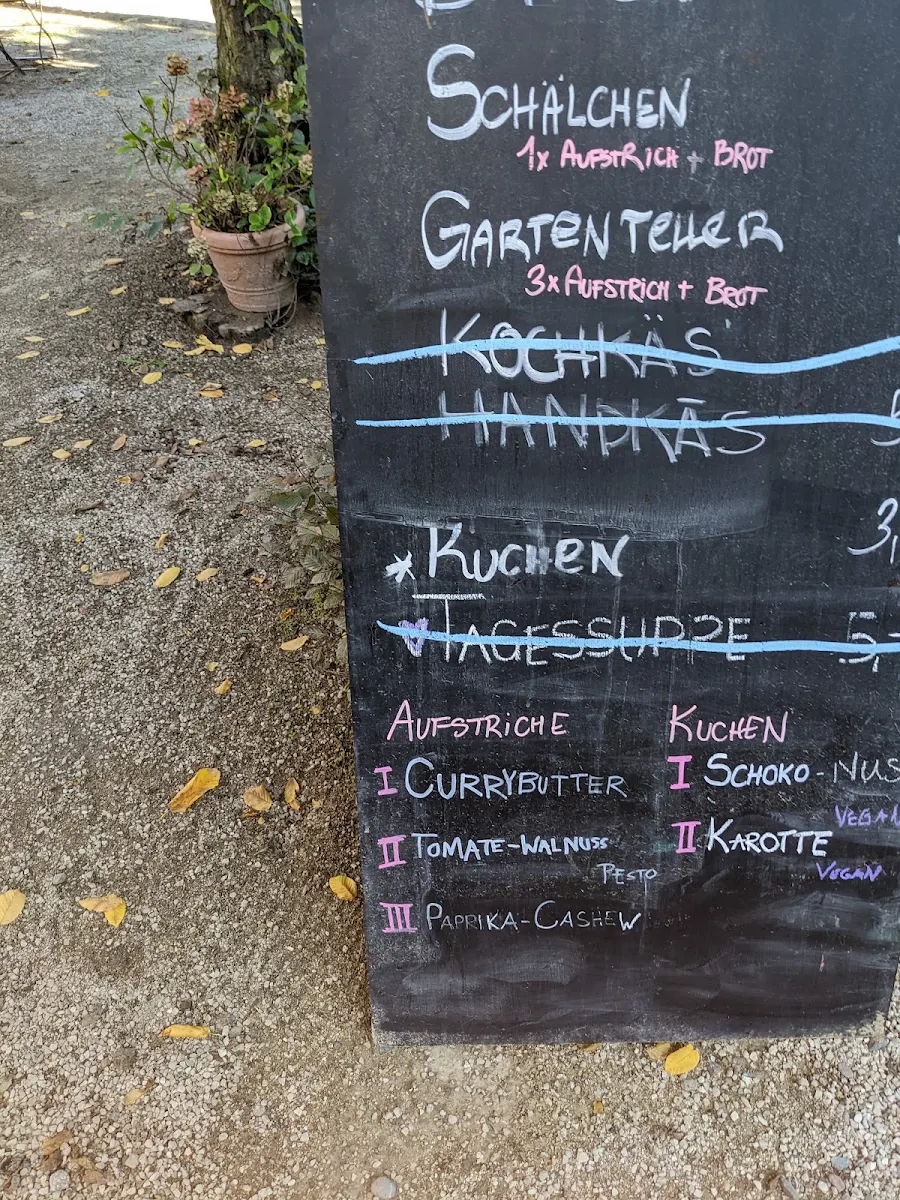 SCHÄLCHEN
1x AUFSTRICH + BROT
GARTENTELLER
3x AUFSTRICH + BROT
KOCHKÄS'
HANDKÄS 5
* KUCHEN 3,
TAGESSUPPE 5,-
AUFSTRICHE
I CURRYBUTTER
II TOMATE-WALNUSS
PESTO
III PAPRIKA-CASHEW
KUCHEN
I SCHOKO-NUS
VEGAN
II KAROTTE
VEGAN